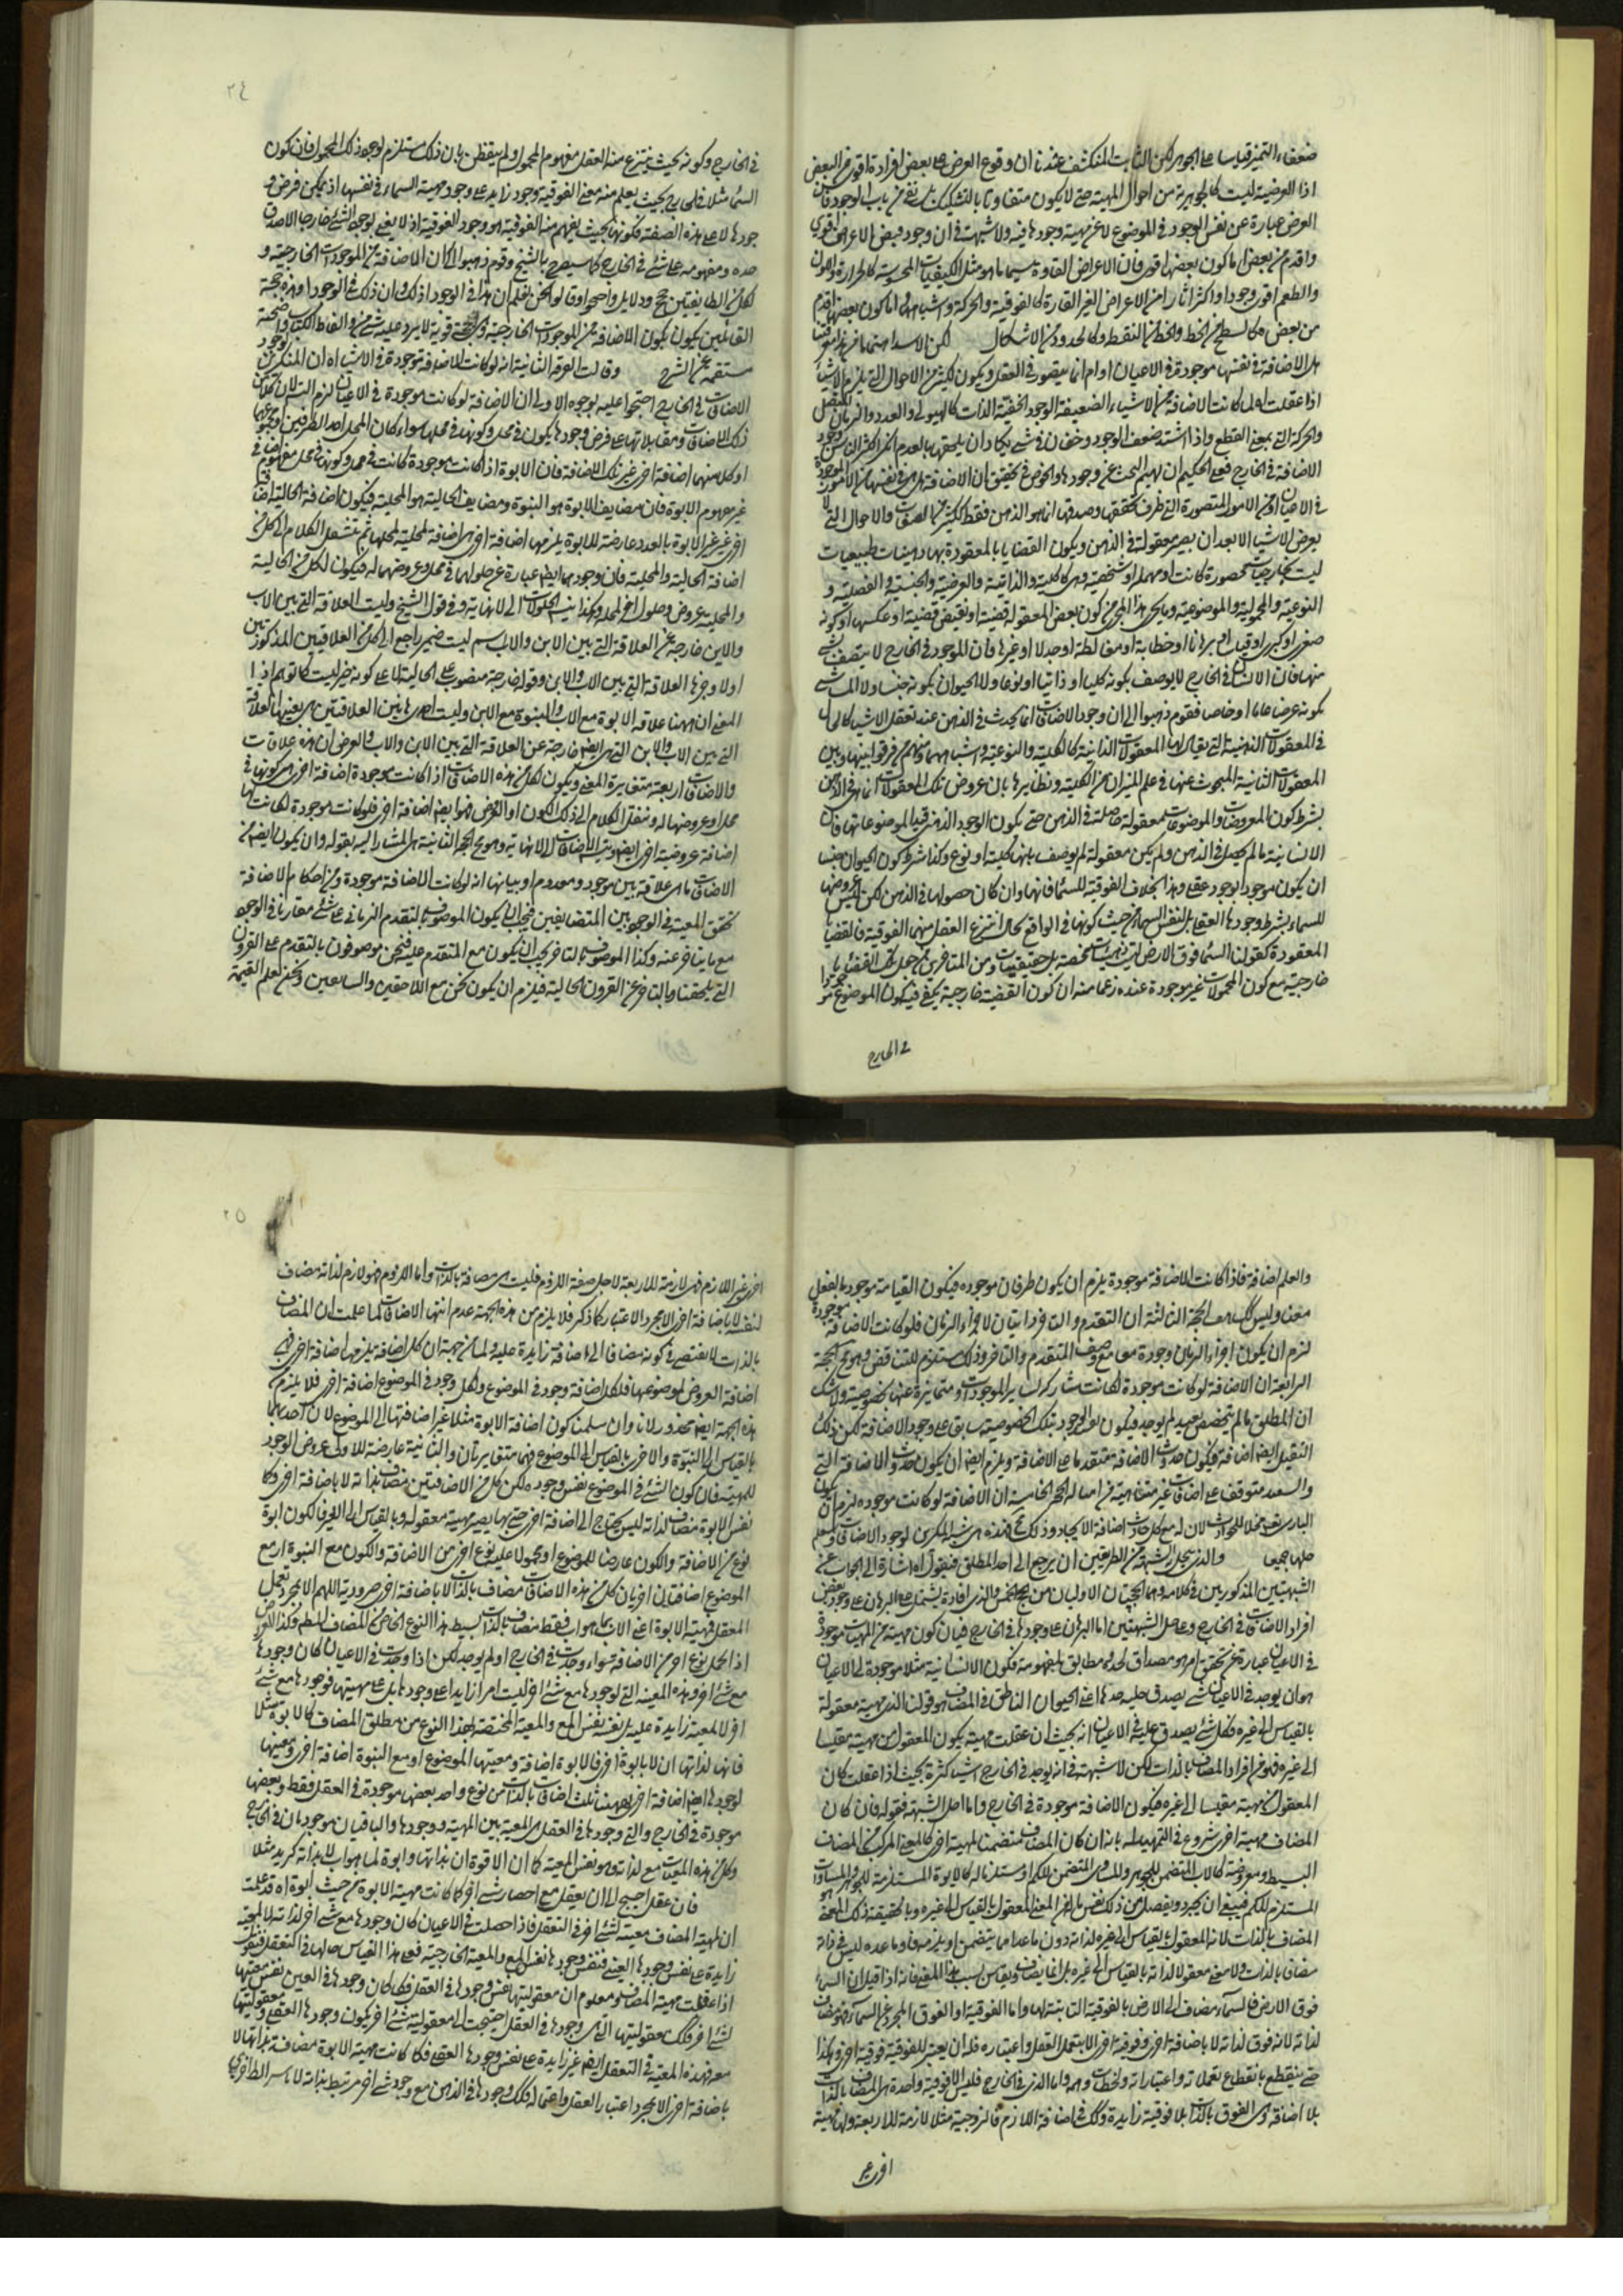 ضعفاء التميز قياسا على الجوهر لكن الثابت المنكشف عندنا ان وقوع العرض على بعض افراده اقوى من البعض
اذا العرضية ليست كالجوهرية من احوال المهية حتى لا يكون متفاوتا بالتشكيك بل نفس باب الوجود فان
العرض عبارة عن نفس الوجود في الموضوع لا عن مهية وجودها فيه ولا شبهة في ان وجود بعض الاعراض اقوى
واقدم من بعض اما كون بعضها اقوى فان الاعراض القارة سيما ما هو مثل الكيفيات المحسوسة كالحرارة واللون
والطعم اقوى وجودا واكثر اثارا من الاعراض الغير القارة كالفوقية والحركة واشباهها واما كون بعضها اقدم
من بعض فكالسطح من الخط والخط من النقطة وكالحدود من الاشكال لكن الاشد اهتماما من هذا معرفتنا
هل الاضافة في نفسها موجودة في الاعيان او امر انما يتصور في العقل ويكون ككثير من الاحوال التي يلزم الاشياء
اذا عقلت لما كانت الاضافة من الاشياء الضعيفة الوجود الخفية الذات كالهيولى والعدد والزمان
والحركة التي بمعنى القطع واذا اشتد ضعف الوجود وخفى في شيء يكاد ان يلحق بالعدم انكر اكثر الناس وجود
الاضافة في الخارج فعلى الحكيم ان يهتم البحث عن وجودها والخوض في تحقيق ان الاضافة هل هي في نفسها من الامور الموجودة
في الاعيان او من الامور المتصورة التي ظرف تحققها وصدقها انما هو الذهن فقط ككثير من الصفات والاحوال التي لا
يعرض الاشياء الا بعد ان يصير معقولة في الذهن ويكون القضايا المعقودة بها ذهنيات طبيعيات
ليست بخارجيات محصورة كانت او مهملة او شخصية وهي كالكلية والذاتية والعرضية والجنسية والفصلية و
النوعية والمحمولية والموضوعية وما يجري هذا المجرى من كون بعض المعقولة قضية او نقيض قضية او عكسها او كونه
صغرى او كبرى او قياسا برهانا او خطابة او مغالطة او جدلا او غيرها فان الموجود في الخارج لا يتصف بشيء
منها فان الانسان في الخارج لا يوصف بكونه كليا او ذاتيا او نوعا ولا الحيوان بكونه جنسا ولا الماشي
بكونه عرضا عاما او خاصا فقوم ذهبوا الى ان وجود الاضافات انما يحدث في الذهن عند تعقل الاشياء كالحال
في المعقولات الذهنية التي يقال لها المعقولات الثانية كالكلية والنوعية واشباههما ومنهم من فرقوا بينها وبين
المعقولات الثانية المبحوث عنها في علم الميزان من الكلية ونظايرها بان عروض تلك المعقولات انما هي في الذهن
بشرط كون المعروضات والموضوعات معقولة حاصلة في الذهن حتى يكون الوجود الذهني قيدا لموضوعاتها فان
الانسانية ما لم يحصل في الذهن ولم يكن معقولة لم يوصف بانها كلية او نوع وكذا شرط كون الحيوان جنسا
ان يكون موجودا بوجود عقلي وهذا بخلاف الفوقية للسماء فانها وان كان حصولها في الذهن لكن ليس عروضها
للسماء بشرط وجودها العقلي بل لنفس السماء من حيث كونها في الواقع بحال انتزع العقل منها الفوقية فالقضايا
المعقودة كقولنا السماء فوق الارض ليست ذهنيات محضة بل حقيقيات ومن المتاخرين من جعل تلك القضايا
خارجية مع كون المحمولات غير موجودة عنده زعما منه ان كون القضية خارجية يكفي فيه كون الموضوع موجودا
في الخارج
٢٤
في الخارج وكونه بحيث ينتزع منه العقل مفهوم المحمول ولم يتفطن بان ذلك مستلزم لوجود ذلك المحمول فان كون
السماء مثلا في الخارج بحيث يعلم منه معنى الفوقية وجود زايد على وجود مهية السماء في نفسها اذ يمكن فرض و
جودها لا على هذه الصفة فكونها بحيث يفهم منه الفوقية هو وجود الفوقية اذ لا يعنى بوجود الشيء خارجا الا صدق
حده ومفهومه على شيء في الخارج كما سيصرح به الشيخ وقوم ذهبوا الى كان الاضافة من الموجودات الخارجية و
لكل من الطايفتين حجج ودلايل واحتجوا وقالوا نحن نعلم ان هذا في الوجود اب ذلك وان ذلك في الوجود ابن هذا وهذه حجة
القائلين بكون الاضافة من الموجودات الخارجية وهي حجة قوية لا يرد عليه شيء والفاظ الكتاب واضحة
مستغنية عن الشرح وقالت الفرقة الثانية انه لو كانت الاضافة موجودة في الاشياء اه ان المنكرين لوجود
الاضافات في الخارج احتجوا عليه بوجوه الاولى ان الاضافة لو كانت موجودة في الاعيان لزم التسلسل لان تحقق
ذلك الاضافات ومقابلاتها على فرض وجودها يكون في محل وكونها في محلها سواء كان المحل احد الطرفين او مجموعهما
او كل منهما اضافة اخرى غير تلك الاضافة فان الابوة اذا كانت موجودة كانت في محل وكونها في محل مفهوم اضافي
غير مفهوم الابوة فان مضايف الابوة هو البنوة ومضايف الحالية هو المحلية فيكون اضافة الحالية اضافة
اخرى غير الابوة بالعدد عارضة للابوة يلزمها اضافة اخرى هي اضافة المحلية لمحلها ثم ننتقل الكلام الى كل من
اضافة الحالية والمحلية فان وجودهما ايضا عبارة عن حلولهما في محل وعروضهما له فيكون لكل من الحالية
والمحلية عروض وحلول اخر لمحله وهكذا يذهب الحلولات الى لا نهاية وفي قول الشيخ وليست العلاقة التي بين الاب
والابن خارجة عن العلاقة التي بين الابن والاب اسم ليست ضمير راجع الى كل من العلاقتين المذكورتين
اولا وخبرها العلاقة التي بين الاب والابن وقوله خارجة منصوب على الحالية لا على كونه خبر ليست كما توهم اذ
المعنى ان ههنا علاقة الابوة مع الاب والبنوة مع الابن وليست احدى هاتين العلاقتين هي بعينها العلاقة
التي بين الاب والابن التي هي ايضا خارجة عن العلاقة التي بين الابن والاب والغرض ان هذه علاقات
والاضافات اربعة متغايرة المعنى ويكون لكل من هذه الاضافات اذا كانت موجودة اضافة اخرى هي كونها في
محل او عروضها له وننقل الكلام الى ذلك الكون او العرض فهو ايضا اضافة اخرى فلو كانت موجودة لكانت لها
اضافة عروضية اخرى ايضا ويتسلسل الاضافات الى لا نهاية ومن هي الحجة الثانية هي المشار اليه بقوله وان يكون ايضا من
الاضافات ما هي علاقة بين موجود ومعدوم اه وبيانها انه لو كانت الاضافة موجودة ومن احكام الاضافة
تحقق المعية في الوجود بين المتضايفين فيجب ان يكون الموصوف بالتقدم الزماني على شيء مقارنا في الوجود
مع ما يتاخر عنه وكذا الموصوف بالتاخر يجب ان يكون مع المتقدم عليه فنحن موصوفون بالتقدم على القرون
التي يلحقنا وبالتاخر عن القرون الخالية فيلزم ان يكون نحن مع اللاحقين والسابقين ونحن نعلم القيمة
والعلم اضافة فاذا كانت الاضافة موجودة يلزم ان يكون طرفان موجوده فيكون القيامة موجودة بالفعل
معنا وليس كك هف الحجة الثالثة ان التقدم والتاخر ذاتيان لاجزاء الزمان فلو كانت الاضافة موجودة
لزم ان يكون اجزاء الزمان وجودة معا مع وصف المتقدم والتاخر وذلك مستلزم للتناقض وهو مح الحجة
الرابعة ان الاضافة لو كانت موجودة لكانت مشاركة لساير الموجودات ومتمايزة عنها بخصوصية ولا شك
ان المطلق ما لم يتخصص بقيد لم يوجد فيكون تقييد الوجود بتلك الخصوصية سابق على وجود الاضافة لكن ذلك
التقييد ايضا اضافة فيكون حدوث الاضافة متقدما على الاضافة ويلزم ايضا ان يكون حدوث الاضافة التي
متوقفة على اضافات غير متناهية الحجة الخامسة ان الاضافة لو كانت موجوده لزم ان يكون
الباري تعالى محلا للحوادث لان له مع كل حادث اضافة الايجاد وذلك مح فهذه هي شبه المنكرين لوجود الاضافات
والذي يحل به الشبهة من الطريقين ان يرجع الى احد المطلق فنقول اه اشارة الى الجواب عن
الشبهتين المذكورتين في كلامه وهما الحجتان الاوليان من حجج الخمس والذي افاده يشتمل على البرهان على وجود بعض
افراد الاضافات في الخارج وعلى حل الشبهتين اما البرهان على وجودها في الخارج فبيان كون مهية من المهيات موجودة
في الاعيان عبارة عن تحقق امر هو مصداق لحده ومطابق لمفهومه فكون الانسانية مثلا موجودة في الاعيان
هو ان يوجد في الاعيان شيء يصدق عليه حدها اعني الحيوان الناطق في المضاف هو قولنا الذي مهية معقولة
بالقياس الى غيره فكل شيء يصدق عليه في الاعيان انه بحيث ان عقلت مهية يكون المعقول من مهية مقيسا
الى غيره فهو من افراد المضاف بالذات لكن لا شبهة في انه يوجد في الخارج اشياء كثيرة بحيث اذا عقلت كان
المعقول من مهية مقيسا الى غيره فيكون الاضافة موجودة في الخارج واما حل الشبهة فقوله فان كان
المضاف مهية اخرى شروع في التمهيد له بانه ان كان المضاف متضمنا لمهية اخرى كالمعنى المركب من المضاف
البسيط ومعروضه كالاب المتضمن للجوهر والمساوي المتضمن للكم او مستلزما له كالابوة المستلزمة للجوهر والمساواة
المستلزم للكم فينبغي ان يجرد ويفصل من ذلك المعنى المعقول بالقياس الى غيره وبالحقيقة ذلك المعنى هو
المضاف بالذات لانه المعقول بالقياس الى غيره لذاته دون ما عداه مما يتضمن او يلزمه فما عداه ليس في ذاته
مضافا بالذات ولا معنى معقولا لذاته بالقياس الى غيره بل انما يضاف ويقاس بسبب هذا المعنى فانه اذا قيل ان السماء
فوق الارض فالسماء مضاف الى الارض بالفوقية الثابتة لها واما الفوقية او الفوق المجرد عن السماء فهو مضاف
لذاته لانه فوق لذاته لا باضافة اخرى وفوقية اخرى الا بتعمل العقل واعتباره فله ان يعتبر للفوقية فوقية اخرى وهكذا
حتى ينقطع بانقطاع تعملاته واعتباراته ولحظات وهمه واما الذي في الخارج فليس الا فوقية واحدة هي المضاف بالذات
بلا اضافة وهي الفوق بالذات بلا فوقية زايدة وكك في اضافة اللازم فالزوجية مثلا لازمة للاربعة ولها مهية
اخرى غير
٢٥
اخرى غير اللازم فهي لازمة للاربعة لاجل صفة اللزوم فليست هي مضافة بالذات واما اللزوم فهو لازم لذاته مضاف
لنفسه لا باضافة اخرى الا بمجرد الاعتبار كما ذكر فلا يلزم من هذه الجهة عدم انتهاء الاضافات لما علمت ان المضاف
بالذات لا يفتقر في كونه مضافا الى اضافة زايدة عليه ولما من جهة ان كل اضافة يلزمها اضافة اخرى هي
اضافة العروض لموضوعها فلكل اضافة وجود في الموضوع ولكل وجود في الموضوع اضافة اخرى فلا يلزم من
هذه الجهة ايضا محذور لانا وان سلمنا كون اضافة الابوة مثلا غير اضافتها الى الموضوع لان احدهما
بالقياس الى البنوة والاخرى بالقياس الى الموضوع فهما متغايرتان والثانية عارضة للاولى عروض الوجود
للمهية فان كون الشيء في الموضوع نفس وجوده لكن كل من الاضافتين مضاف بذاته لا باضافة اخرى وكما
نفس الابوة مضاف لذاته ليس يحتاج الى اضافة اخرى حتى بها يصير مهية معقوله بالقياس الى الغير فالكون ابوة
نوع من الاضافة والكون عارضا للموضوع او محمولا عليه نوع اخر من الاضافة والكون مع البنوة او مع
الموضوع اضافتان اخريان كل من هذه الاضافات مضاف بالذات لا باضافة اخرى ضرورية اللهم الا بمجرد تعمل
العقل فمهية الابوة اعني الاب بما هو اب فقط مضاف بالذات بسيط هذا النوع الخاص من المضاف
اذا لكل نوع اخر من الاضافة سواء وجدت في الخارج او لم يوجد لكن اذا وجدت في الاعيان كان وجودها
مع شيء اخر وهذه المعية التي لوجودها مع شيء اخر ليست امرا زايدا على وجودها بل على مهيتها فوجودها مع شيء
اخر لا لمعية زايدة عليه بل نفسه نفس المع والمعية المختصة لهذا النوع من مطلق المضاف كالابوة مثلا
فانها لذاتها اب لا بابوة اخرى فالابوة اضافة ومعيتها الموضوع او مع البنوة اضافة اخرى ومعيتها
لوجودها ايضا اضافة اخرى فههنا ثلث اضافات بالذات من نوع واحد بعضها موجودة في العقل فقط وبعضها
موجودة في الخارج والتي وجودها في العقل هي المعية بين المهية ووجودها والباقيان موجودان في الخارج
وكل من هذه المعيات مع لذاته وهو نفس المعية كما ان الابوة اب بذاتها وابوة لما هو اب لا بذاته كزيد مثلا
فان عقل احتيج الى ان يعقل مع احضار شيء اخر كما كانت مهية الابوة من حيث ابوة اه قد علمت
ان لمهية المضاف معية لشيء اخر في التعقل فاذا حصلت في الاعيان كان وجودها مع شيء اخر لذاته لا لمعية
زايدة على نفس وجودها العيني فنفس وجودها نفس المع والمعية الخارجية فعلى هذا القياس حالها في التعقل فنقول
اذا عقلت مهية المضاف ومعلوم ان معقوليتها نفس وجودها في العقل فكما كان وجودها في العين نفس معيتها
لشيء اخر فكك معقوليتها التي هي وجودها في العقل احتيجت الى معقولية شيء اخر يكون وجودها العقلي ومعقوليتها
معه فهذه المعية في التعقل ايضا غير زايدة على نفس وجودها العقلي فكما كانت مهية الابوة مضافة بذاتها لا
باضافة اخرى الا بمجرد اعتبار العقل واحتماله فكك وجودها في الذهن مع وجود شيء اخر مرتبط بذاته لا